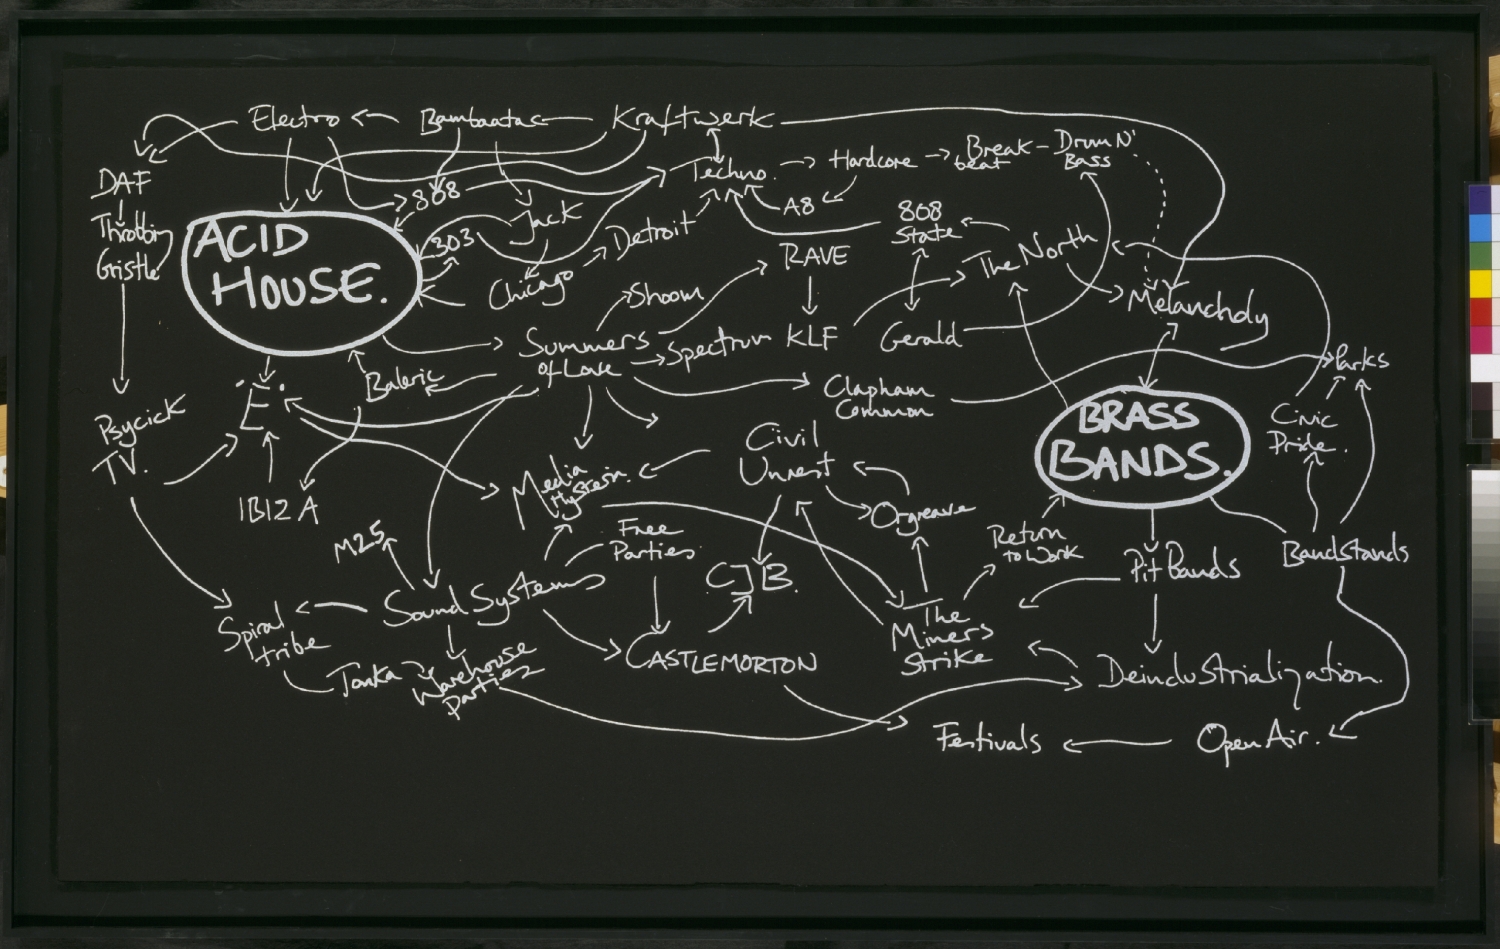 Electro
Bambaataa
Kraftwerk
DAF
Throbbing
Gristle
ACID
HOUSE.
808
303
Jack
Chicago
Detroit
Techno.
Hardcore
Break-
beat
Drum N'
Bass
A8
808
State
RAVE
The North
Melancholy
Shoom
Summers
of Love
Spectrum
KLF
Gerald
Parks
Baleric
'E'
Clapham
Common
BRASS
BANDS.
Civic
Pride.
Psycick
TV.
IBIZA
Media
Hysteria.
Civil
Unrest
Orgreave
M25
Free
Parties
Return
to Work
Pit Bands
Bandstands
CJB.
Sound Systems
Spiral
tribe
Tonka
Warehouse
Parties
CASTLEMORTON
The
Miners
Strike
Deindustrialization.
Festivals
Open Air.